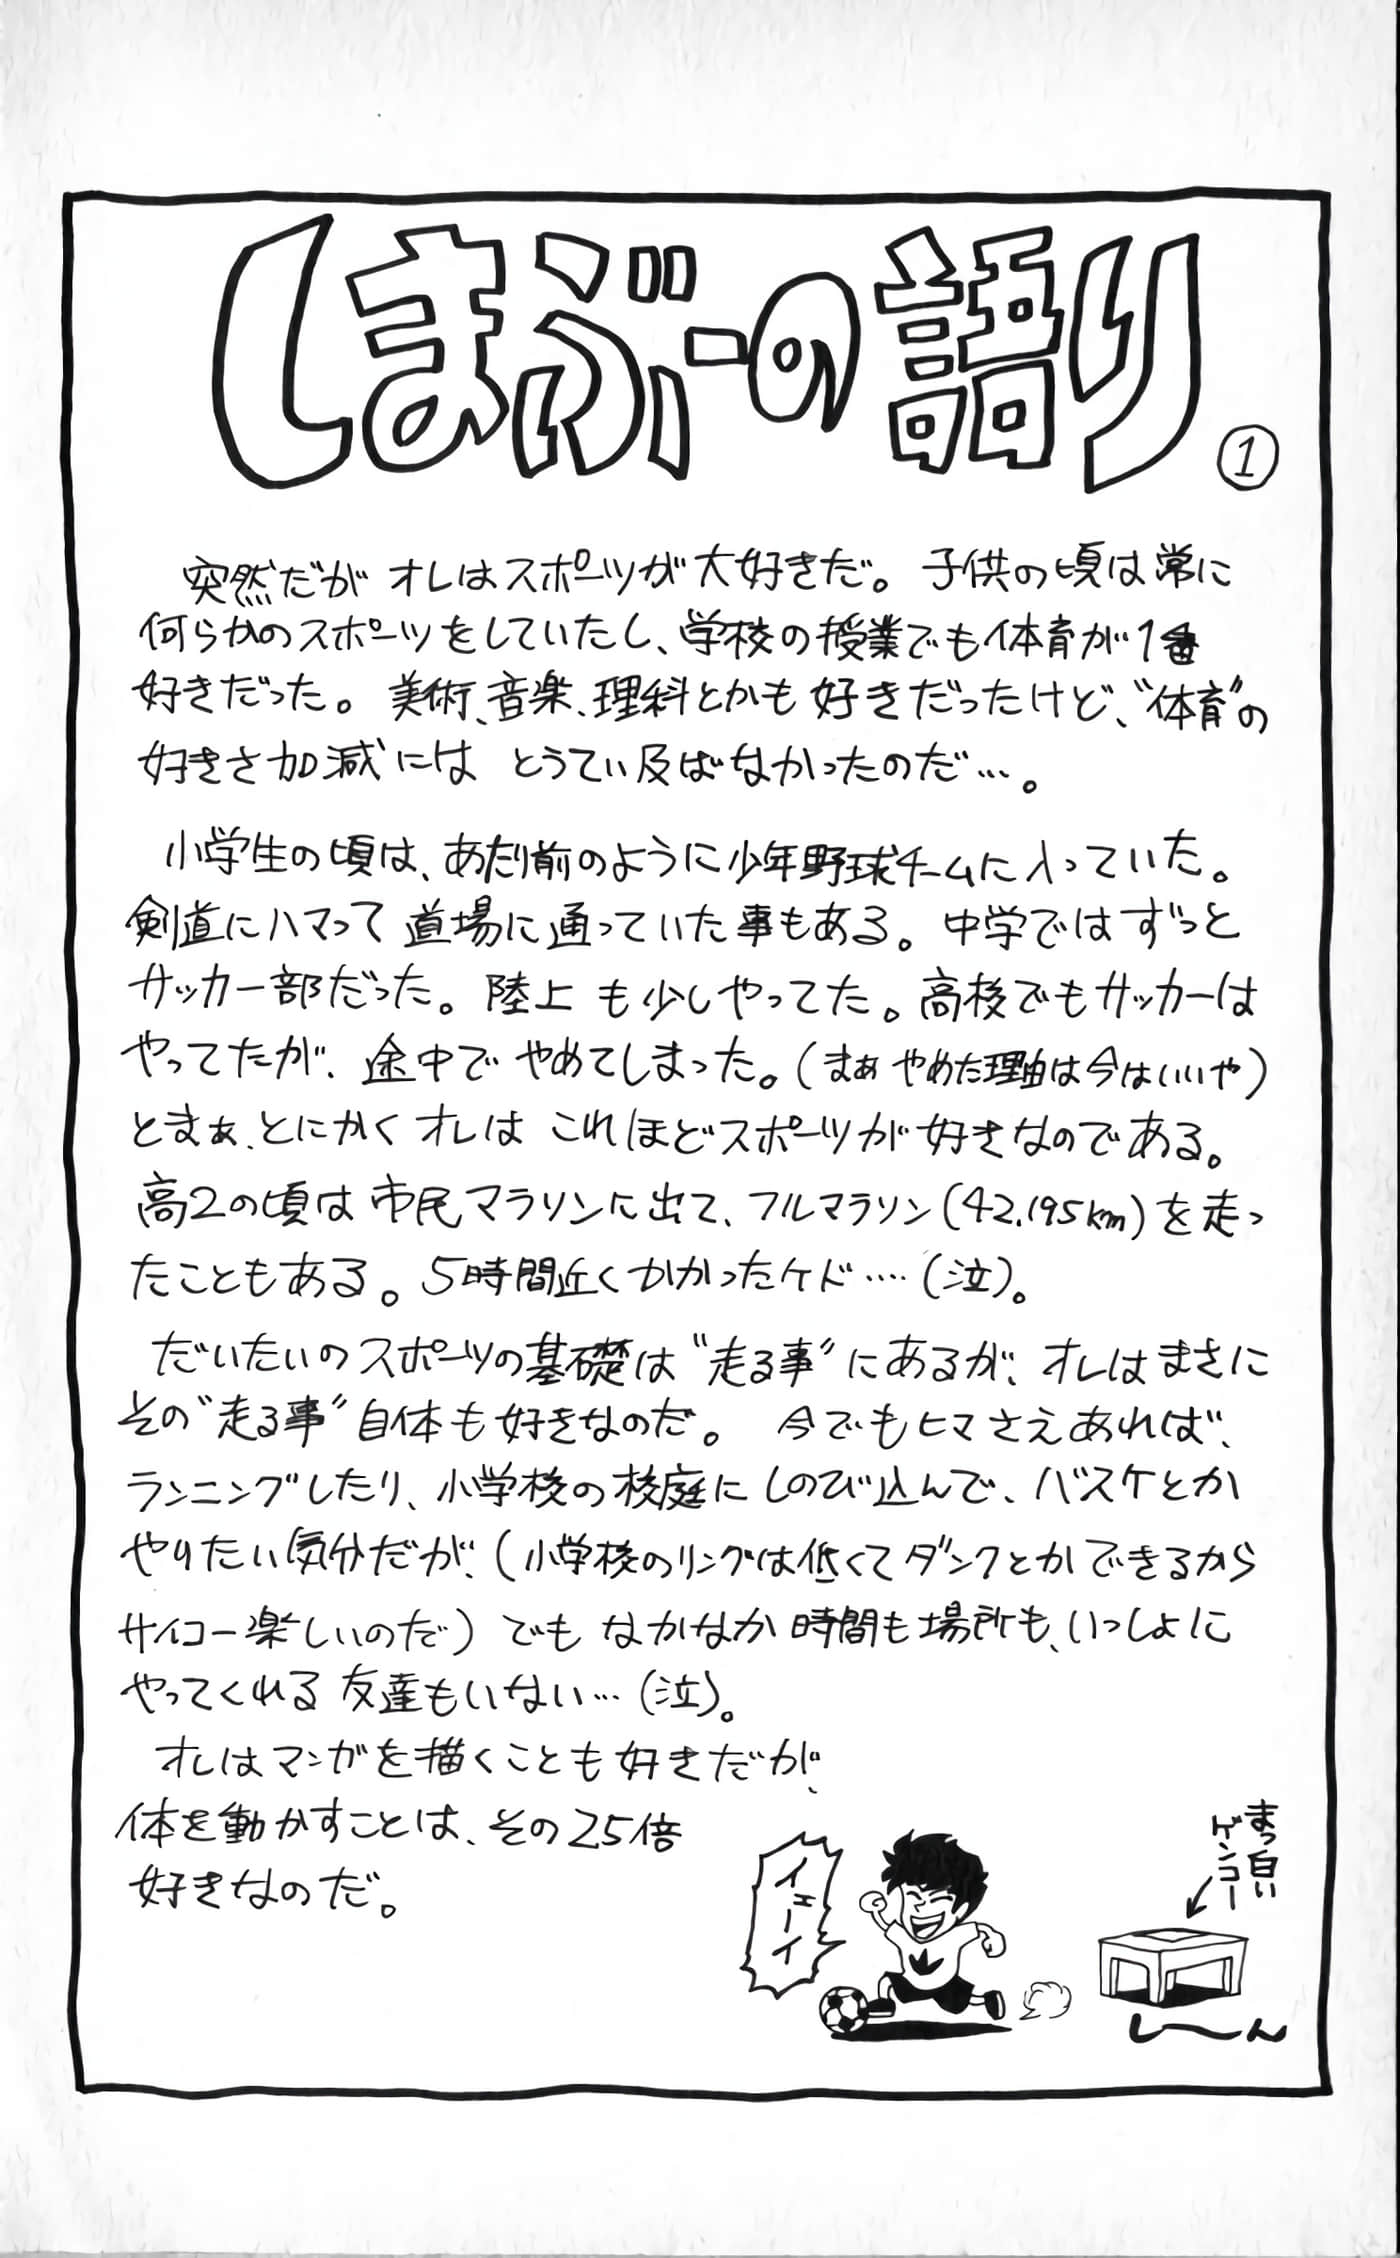 しまぶーの語り
①
突然だが オレはスポーツが大好きだ。 子供の頃は常に
何らかのスポーツをしていたし、学校の授業でも体育が1番
好きだった。 美術、音楽、理科とかも好きだったけど、〝体育〟の
好きさ加減には とうてい及ばなかったのだ…。
小学生の頃は、あたり前のように少年野球チームに入っていた。
剣道にハマって道場に通っていた事もある。 中学ではずっと
サッカー部だった。 陸上も少しやってた。高校でもサッカーは
やってたが、途中でやめてしまった。(まぁやめた理由は今はいいや)
とまぁ、とにかくオレは これほどスポーツが好きなのである。
高2の頃は市民マラソンに出て、フルマラソン(42.195km)を走っ
たこともある。5時間近くかかったケド‥‥(泣)。
だいたいのスポーツの基礎は〝走る事〟にあるが、オレはまさに
その〝走る事〟自体も好きなのだ。 今でもヒマさえあれば、
ランニングしたり、小学校の校庭にしのび込んで、バスケとか
やりたい気分だが、(小学校のリングは低くてダンクとかできるから
サイコー楽しいのだ) でも なかなか時間も場所も、いっしょに
やってくれる友達もいない…(泣)。
オレはマンガを描くことも好きだが、
体を動かすことは、その25倍
好きなのだ。
イェーイ
まっ白い
ゲンコー
し〜ん